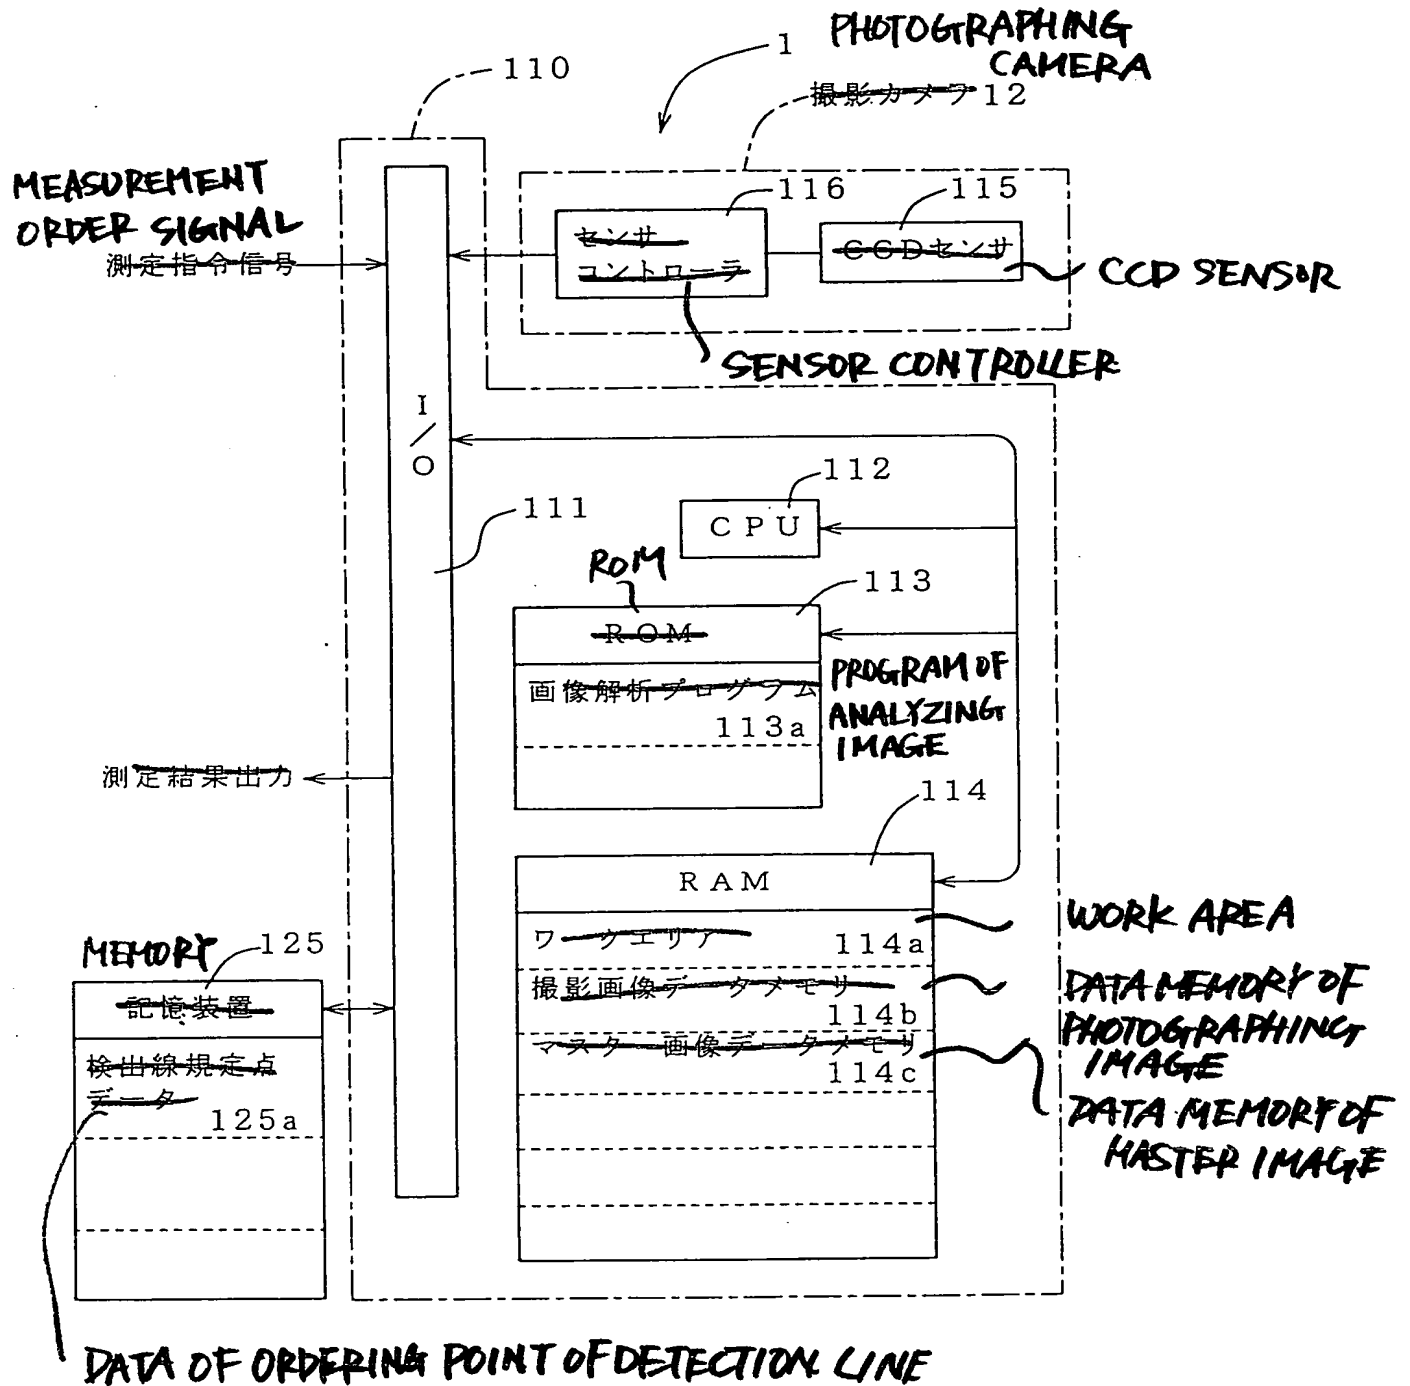 PHOTOGRAPHING
CAMERA
1
110
撮影カメラ 12
MEASUREMENT
ORDER SIGNAL
測定指令信号
116
115
センサ
コントローラ
CCDセンサ
CCD SENSOR
SENSOR CONTROLLER
I/O
111
112
CPU
ROM
113
ROM
画像解析プログラム
113a
PROGRAM OF
ANALYZING
IMAGE
測定結果出力
114
RAM
ワークエリア
114a
WORK AREA
撮影画像データメモリ
114b
DATA MEMORY OF
PHOTOGRAPHING
IMAGE
マスター画像データメモリ
114c
DATA MEMORY OF
MASTER IMAGE
MEMORY
125
記憶装置
検出線規定点
データ
125a
DATA OF ORDERING POINT OF DETECTION LINE